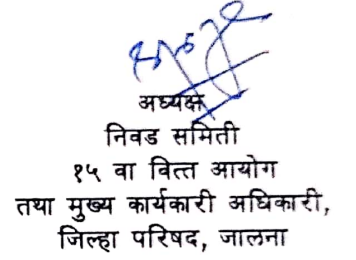 अध्यक्ष
निवड समिती
१५ वा वित्त आयोग
तथा मुख्य कार्यकारी अधिकारी,
जिल्हा परिषद, जालना